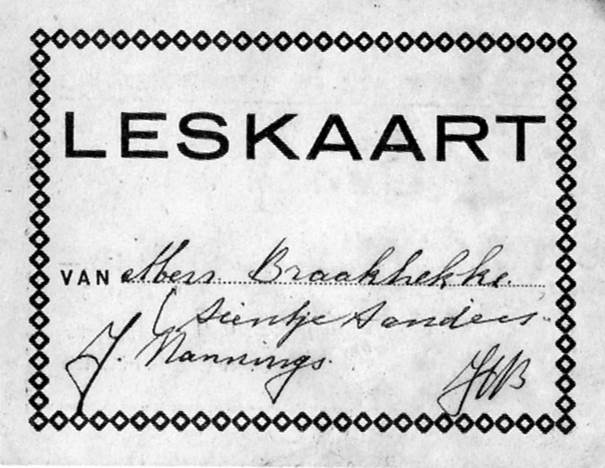 LESKAART
VAN Mevr. Braakhekke
(Sientje Sanders
J. Nannings.
HB